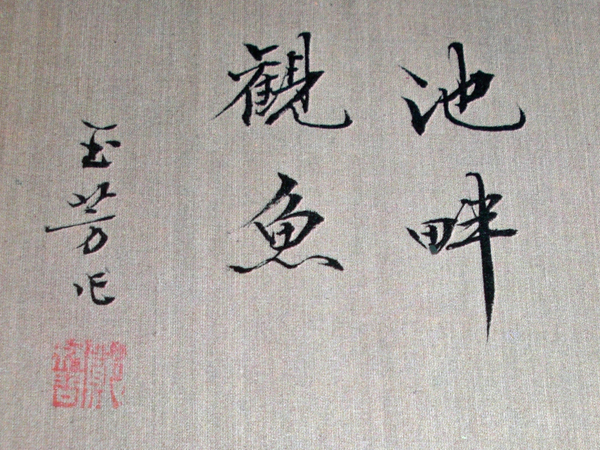 池畔
観魚
玉芳作